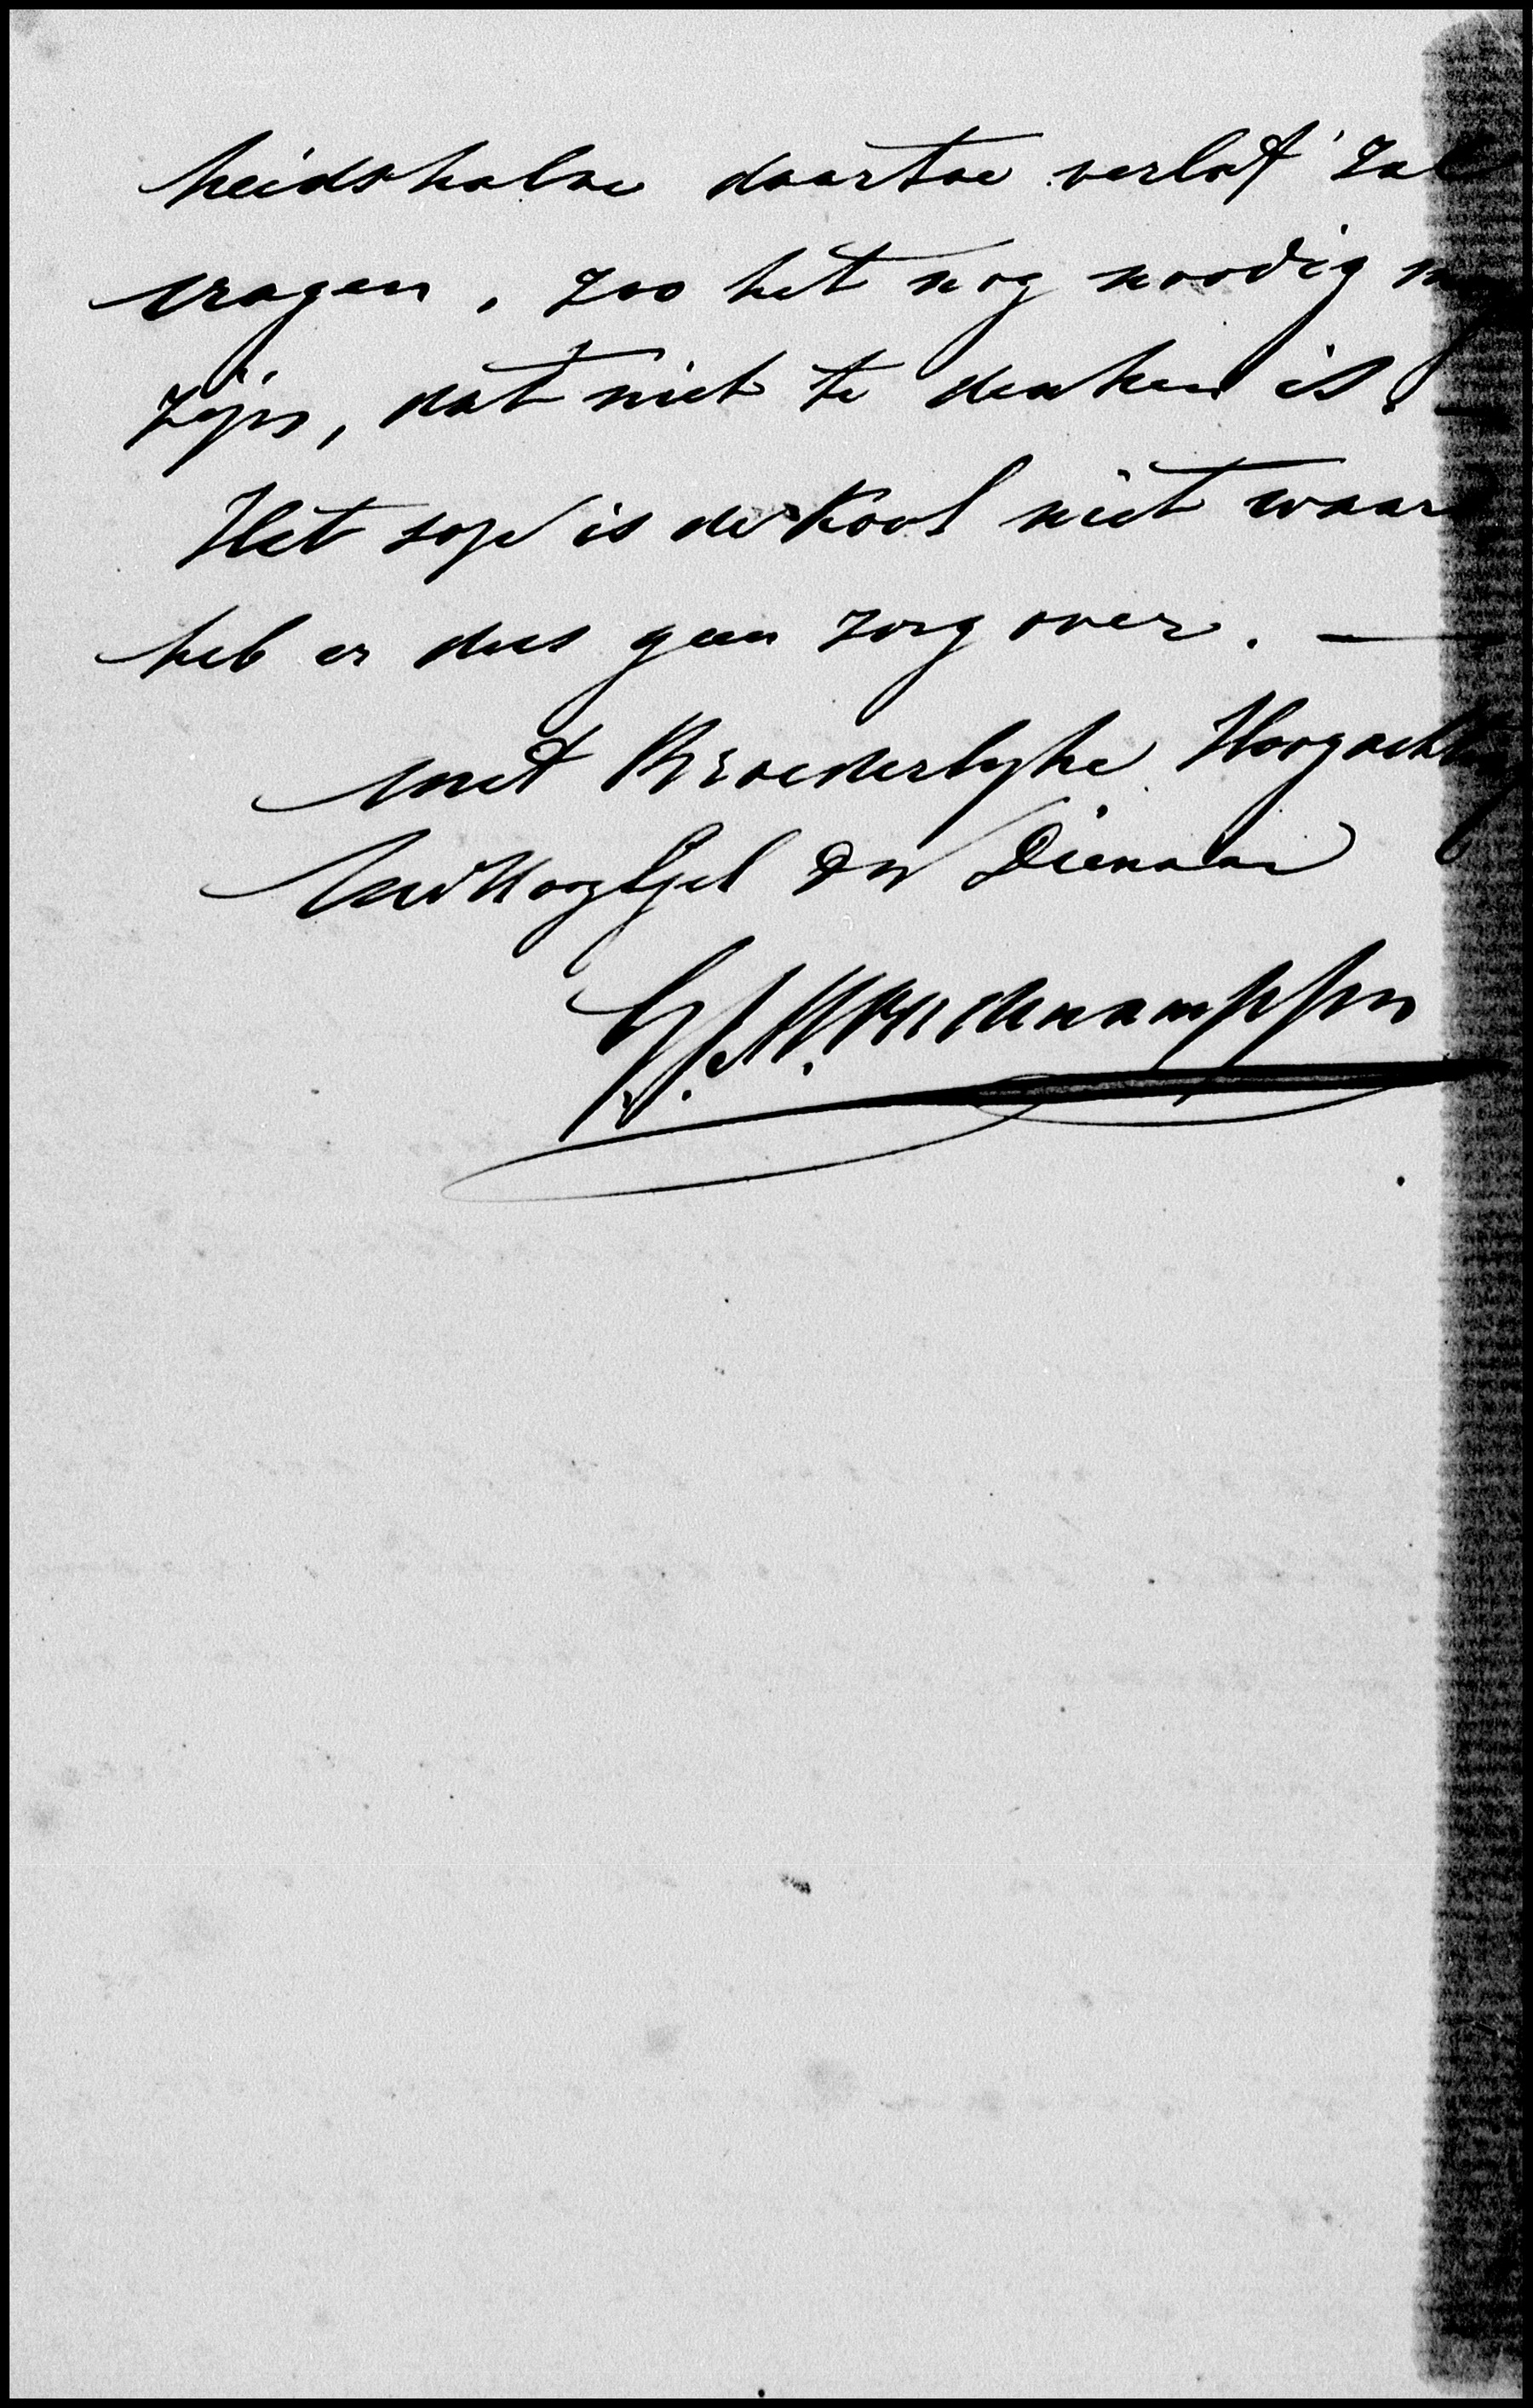 heidshalve daartoe verlof zal
vragen, zoo het nog noodig mogt
zijn, dat niet te denken is. —
Het sop is de kool niet waard
heb er dus geen zorg over. —
met Broederlyke Hoogachting
UwHoogEgel Dw Dienaar